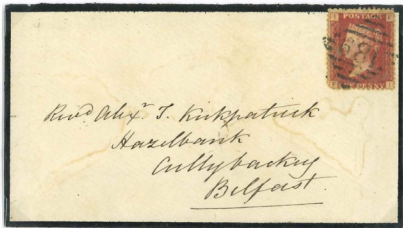 POSTAGE
Revd Alexr T. Kirkpatrick
Hazelbank
Cullybackey
Belfast.